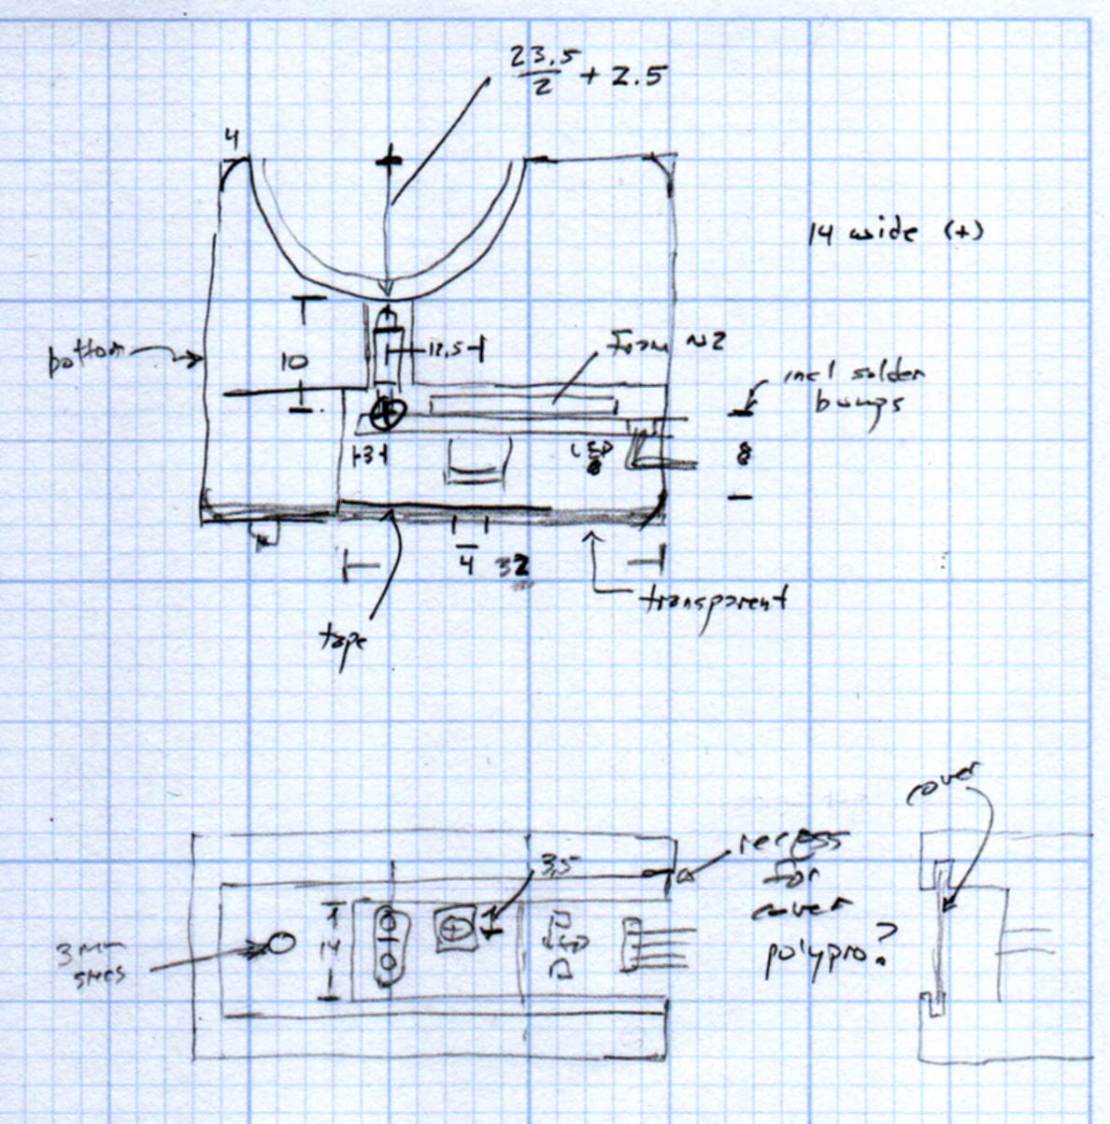 23.5
2 + 2.5
4
14 wide (+)
bottom
10
12,5
Foam ~2
incl solder
bumps
3
LED
8
4 32
transparent
tape
cover
3,5
recess
for
cover
polypro?
14
LED
3mm